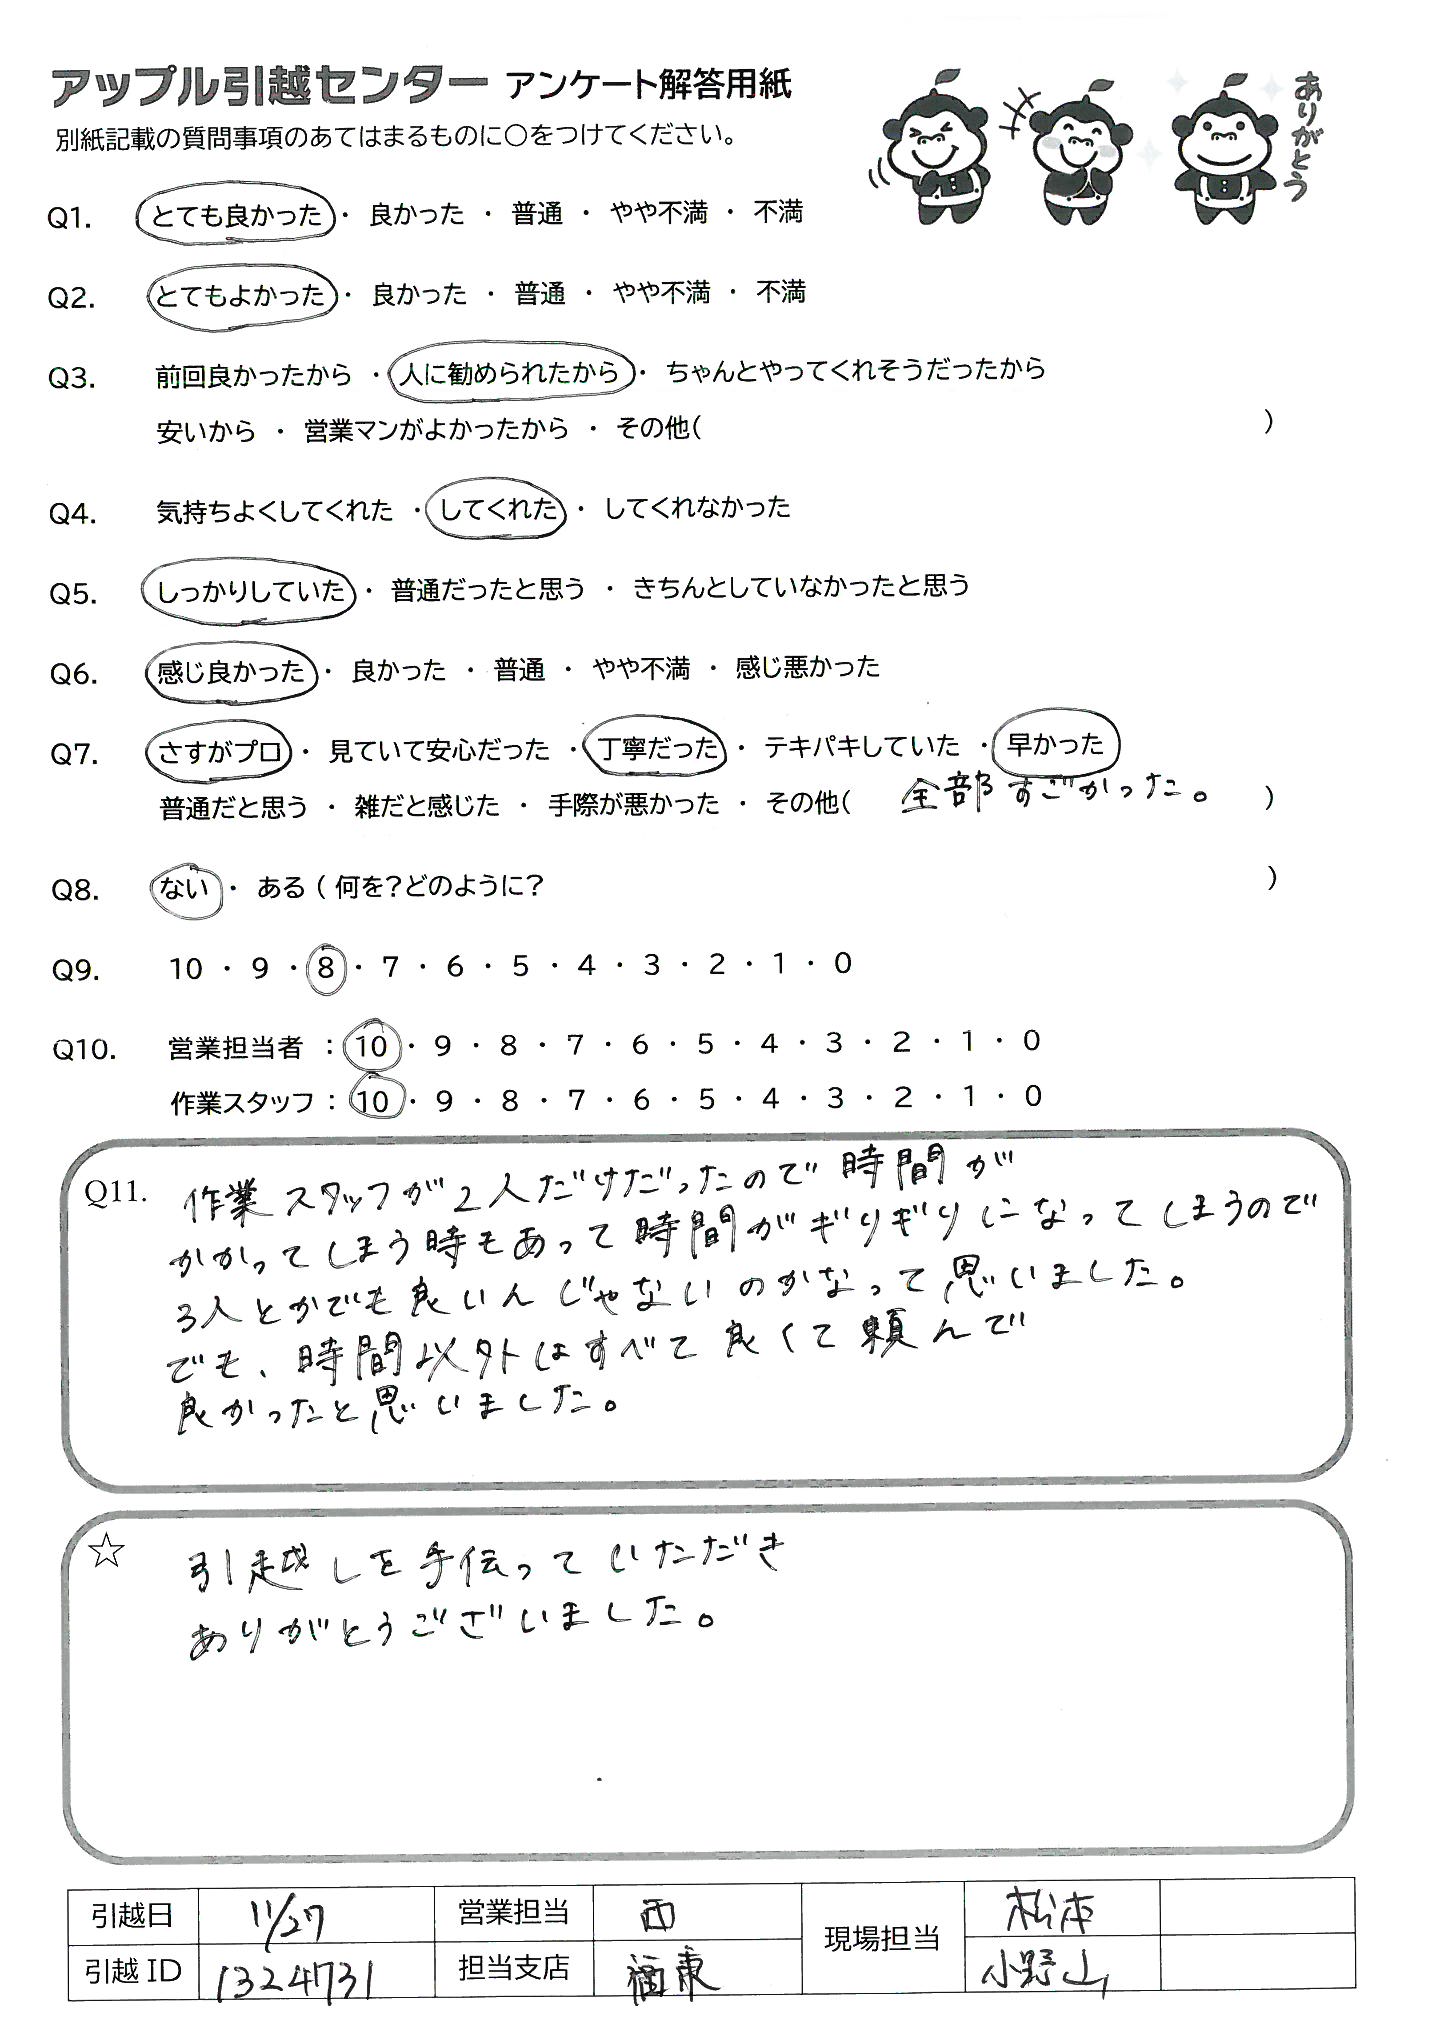 アップル引越センター アンケート解答用紙
別紙記載の質問事項のあてはまるものに○をつけてください。
ありがとう
Q1. とても良かった ・ 良かった ・ 普通 ・ やや不満 ・ 不満
Q2. とてもよかった ・ 良かった ・ 普通 ・ やや不満 ・ 不満
Q3. 前回良かったから ・ 人に勧められたから ・ ちゃんとやってくれそうだったから
安いから ・ 営業マンがよかったから ・ その他( )
Q4. 気持ちよくしてくれた ・ してくれた ・ してくれなかった
Q5. しっかりしていた ・ 普通だったと思う ・ きちんとしていなかったと思う
Q6. 感じ良かった ・ 良かった ・ 普通 ・ やや不満 ・ 感じ悪かった
Q7. さすがプロ ・ 見ていて安心だった ・ 丁寧だった ・ テキパキしていた ・ 早かった
普通だと思う ・ 雑だと感じた ・ 手際が悪かった ・ その他( 全部すごかった。 )
Q8. ない ・ ある ( 何を?どのように? )
Q9. 10 ・ 9 ・ 8 ・ 7 ・ 6 ・ 5 ・ 4 ・ 3 ・ 2 ・ 1 ・ 0
Q10. 営業担当者 : 10 ・ 9 ・ 8 ・ 7 ・ 6 ・ 5 ・ 4 ・ 3 ・ 2 ・ 1 ・ 0
作業スタッフ : 10 ・ 9 ・ 8 ・ 7 ・ 6 ・ 5 ・ 4 ・ 3 ・ 2 ・ 1 ・ 0
Q11. 作業スタッフが2人だけだったので時間が
かかってしまう時もあって時間がぎりぎりになってしまうので
3人とかでも良いんじゃないのかなって思いました。
でも、時間以外はすべて良くて頼んで
良かったと思いました。
☆ 引越しを手伝っていただき
ありがとうございました。
引越日 11/27 営業担当 西 現場担当 松本
引越ID 1324731 担当支店 福東 小野山